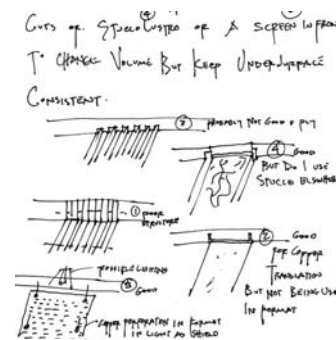 CUTS OR STUCCO LUSTRO OR A SCREEN IN FRONT
TO CHANGE VOLUME BUT KEEP UNDERSURFACE
CONSISTENT.
③ PROBABLY NOT GOOD
④ GOOD
BUT DO I USE
STUCCO ELSEWHERE
① POOR
STRUCTURE
② GOOD
FOR COPPER
TRANSLATION
BUT NOT BEING USED
IN FORMAT
POSSIBLE LIGHTING
GOOD
COPPER PERFORATED IN FORMAT
IN LIGHT AS SHIELD